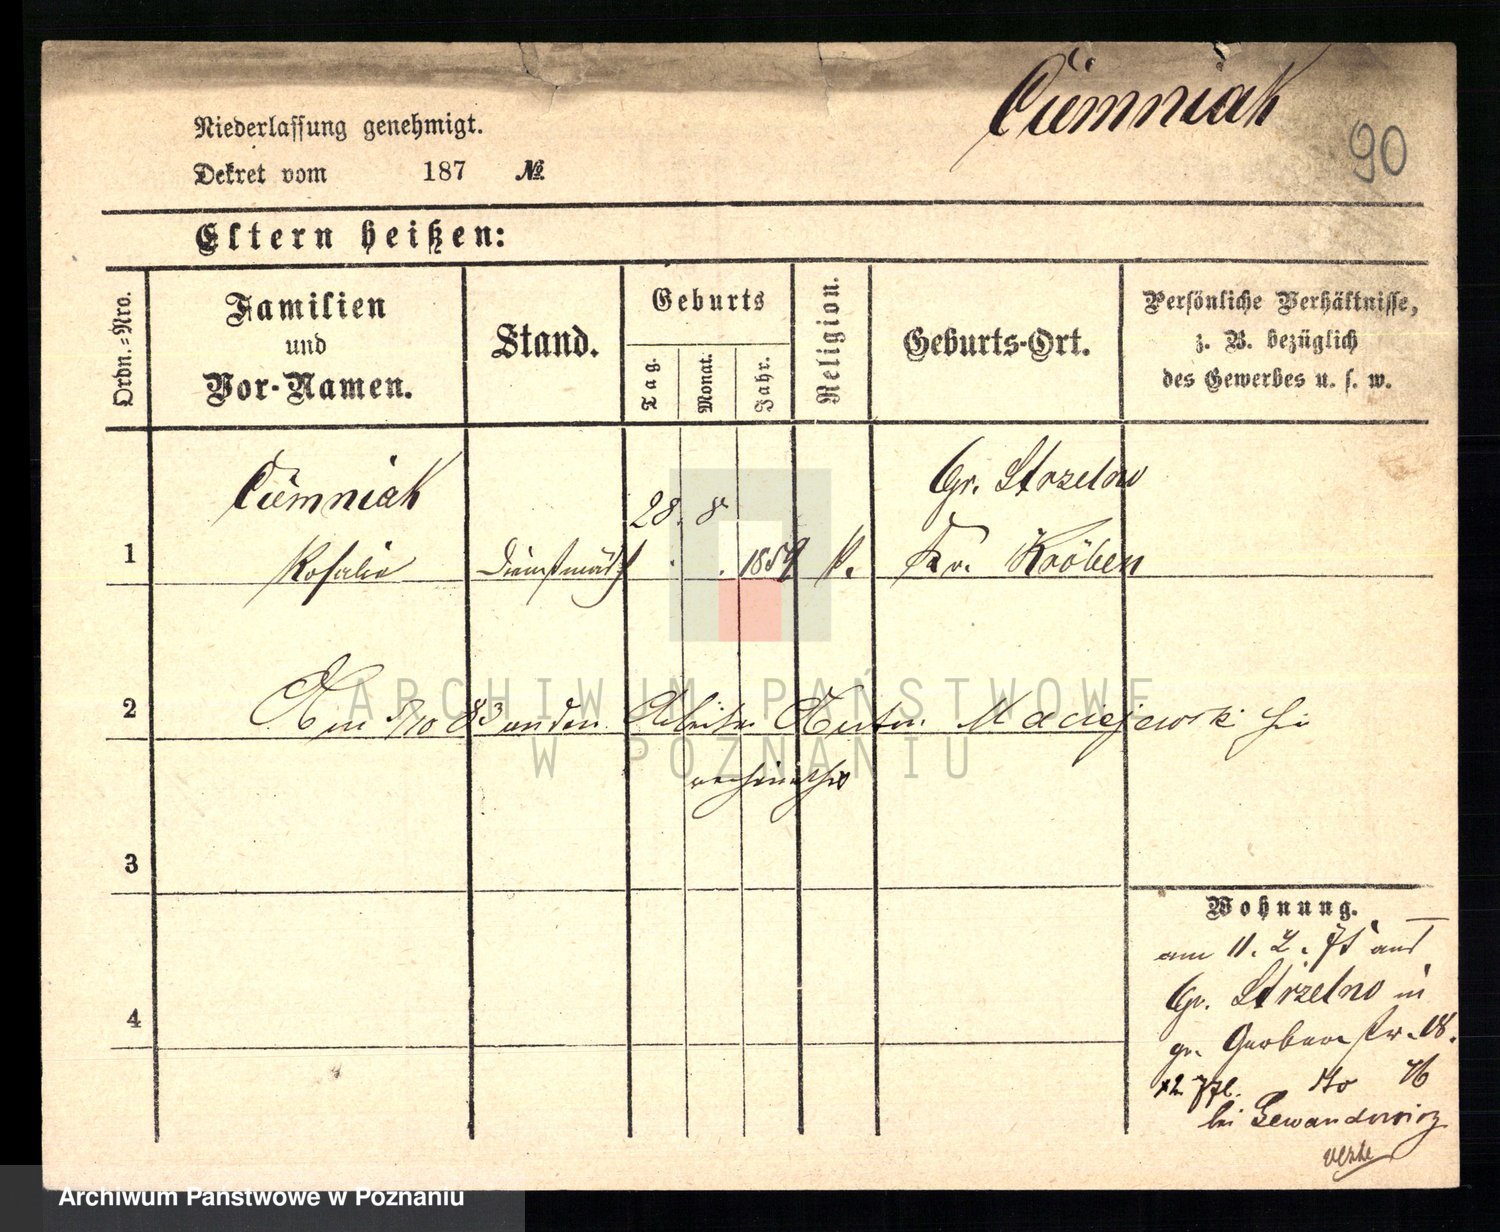 Ciemniak
90
Niederlassung genehmigt.
Dekret vom 187 №
Eltern heißen:
Ordn.=Nro.
Familien
und
Vor-Namen.
Stand.
Geburts
Tag.
Monat.
Jahr.
Religion.
Geburts-Ort.
Persönliche Verhältnisse,
z. B. bezüglich
des Gewerbes u. s. w.
Ciemniak
28. 8
Gr. Strzelno
1
Rosalie
Dienstmädch
1859
k.
Kr. Kröben
2
Am 5/10 83 an den Arbeiter Anton Maciejewski hie
verheirathet
3
4
Wohnung.
am 11. 2. 75 aus
Gr. Strzelno in
gr. Gerberstr. 18.
bei Lewandowicz
ARCHIWUM PAŃSTWOWE
W POZNANIU
Archiwum Państwowe w Poznaniu